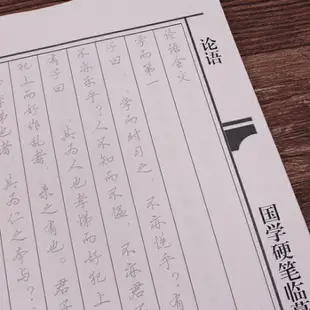 论语
国学硬笔临摹
论语全文
学而第一
子曰：学而时习之，不亦说乎？有
不亦乐乎？人不知而不愠，不亦君子
有子曰：其为人也孝悌而好犯上
犯上而好作乱者，未之有也。君子
悌也者，其为仁之本与？